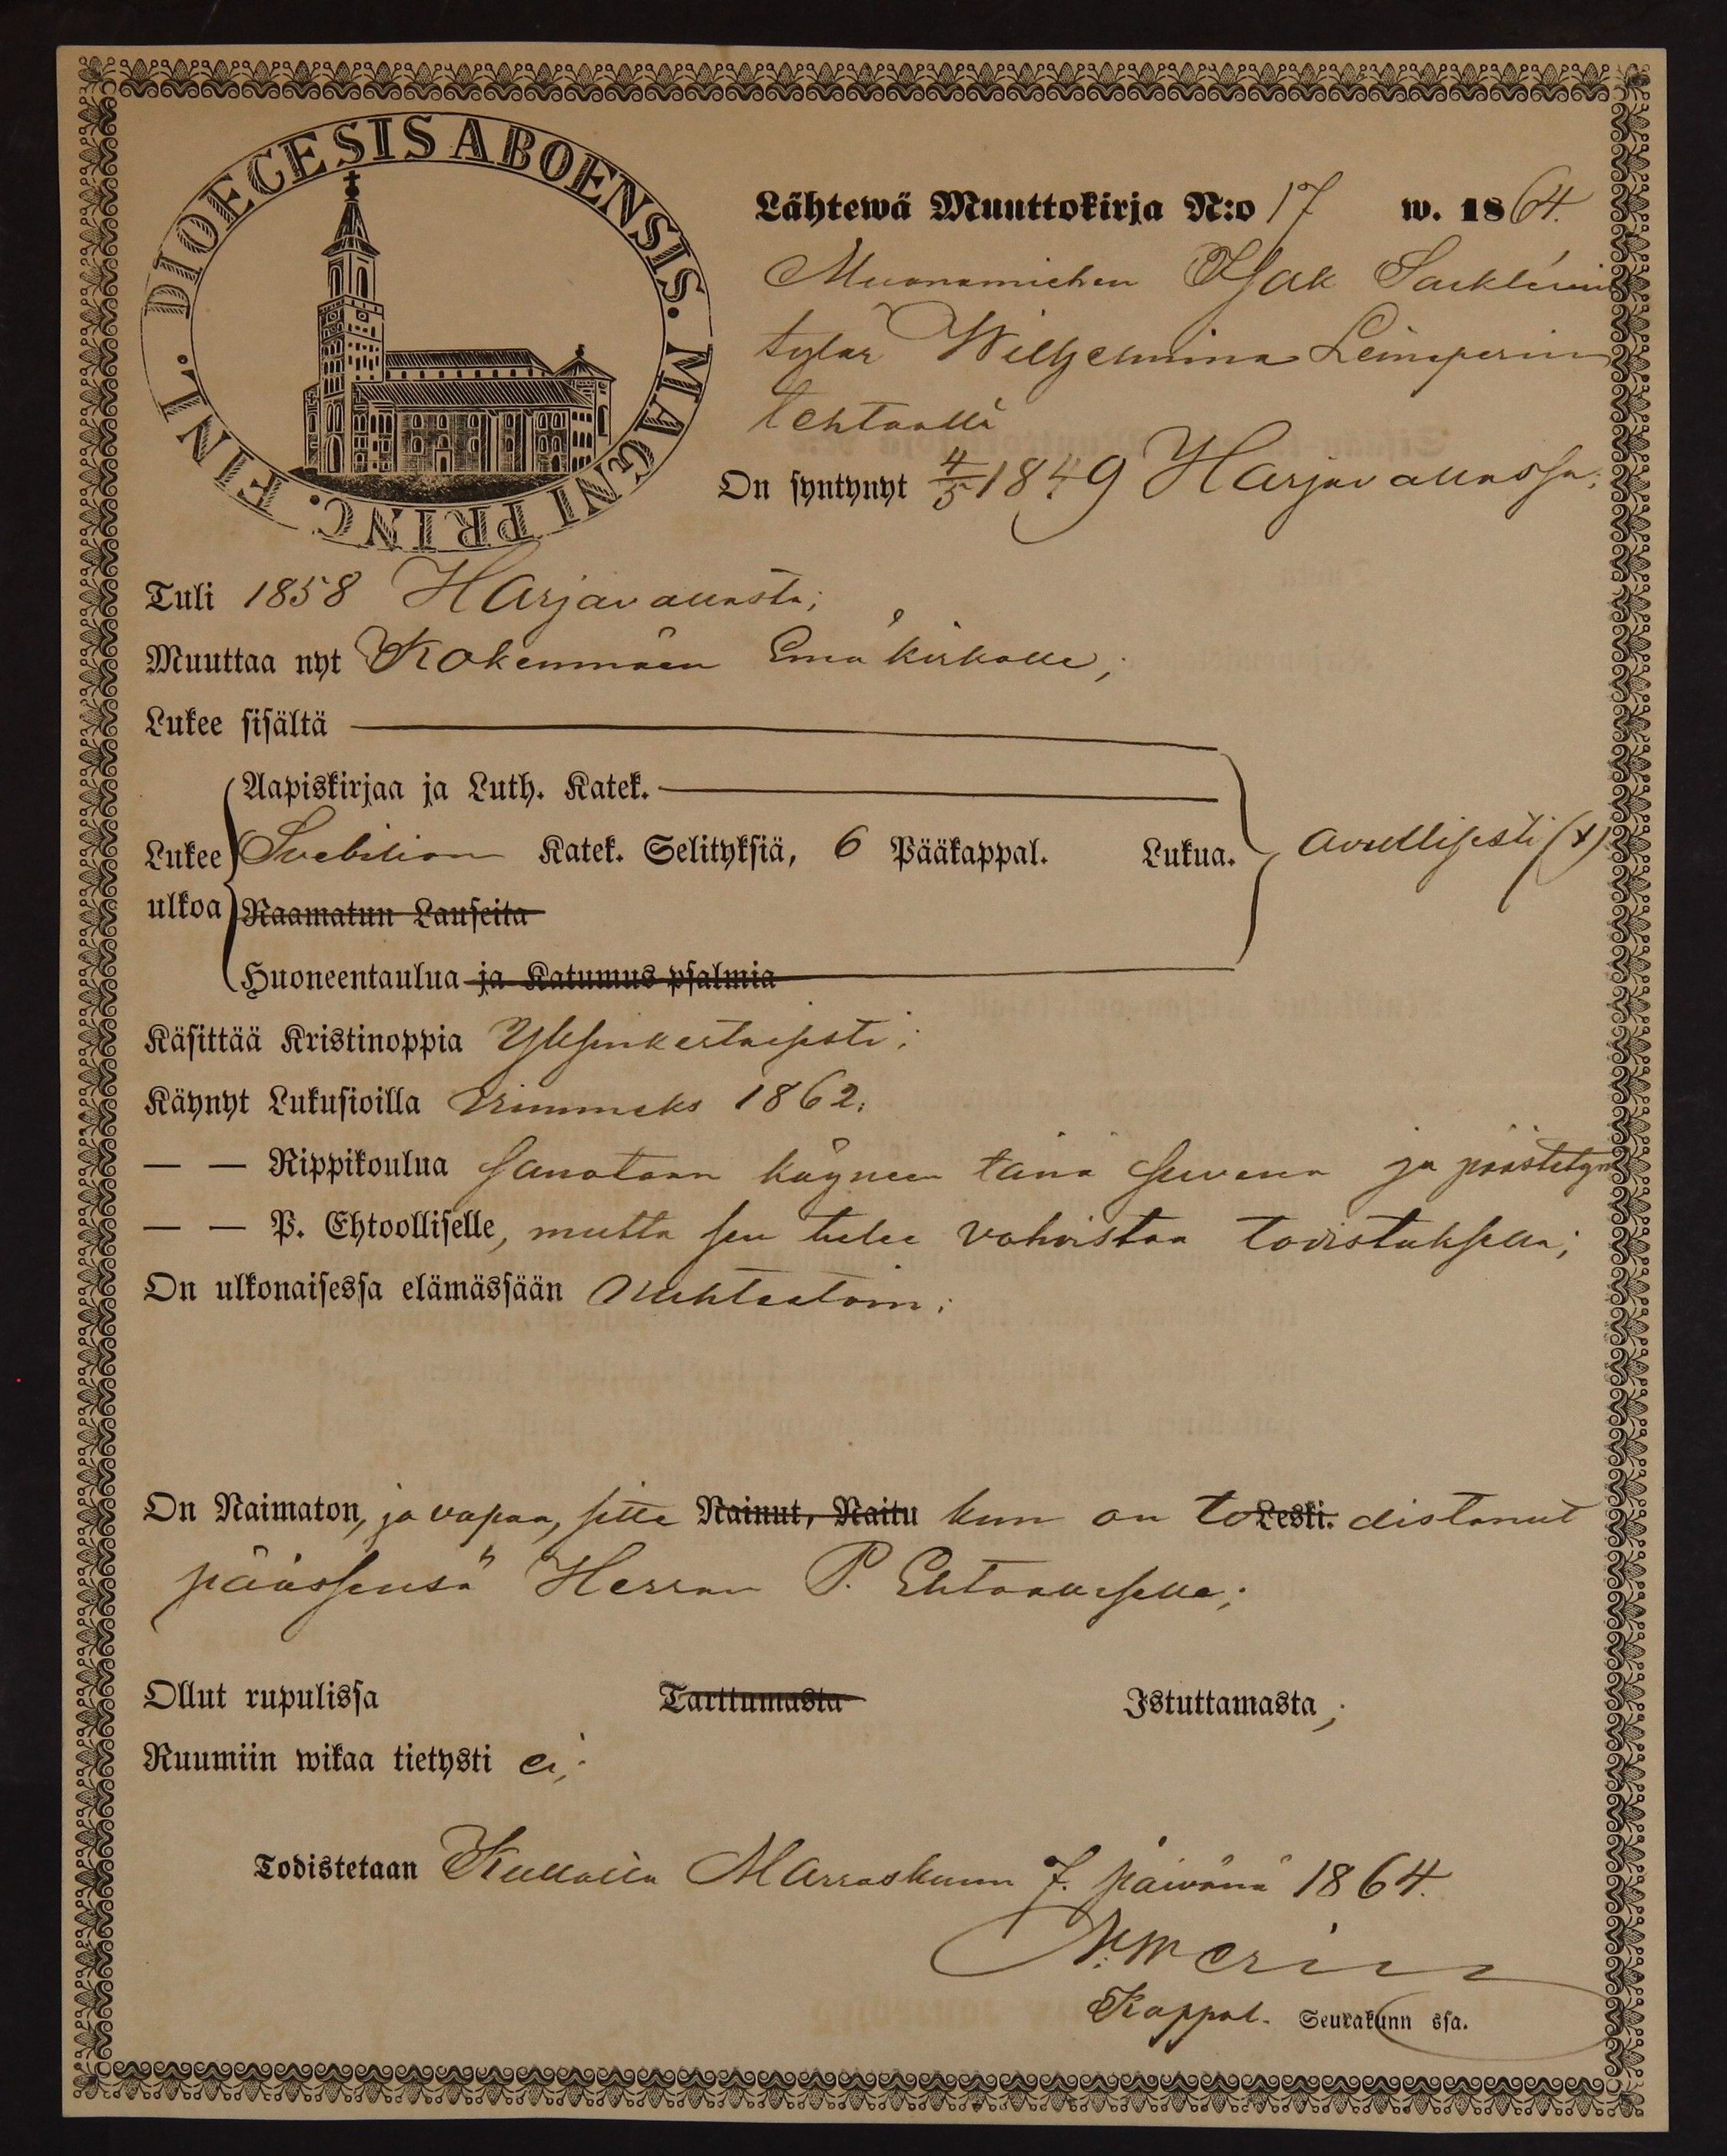 DIOECESIS ABOENSIS. MAGNI PRINC. FINL.
Lähtewä Muuttokirja N:o 17 w. 1864.
Muonamiehen Isak
tytär Wilhelmina Leineperin
tehtaalla
On syntynyt 4/5 1849 Harjavallassa;
Tuli 1858 Harjavallasta;
Muuttaa nyt Kokenmäen Emäkirkolle;
Lukee sisältä
Aapiskirjaa ja Luth. Katek.
Lukee Svebilion Katek. Selityksiä, 6 Pääkappal. Lukua. avullisesti (x)
ulkoa Raamatun Lauseita
Huoneentaulua ja Katumus psalmia
Käsittää Kristinoppia Yksinkertaisesti;
Käynyt Lukusioilla 1862;
— — Rippikoulua sanotaan käyneen tänä suvena ja päästetyn
— — P. Ehtoolliselle, mutta sen tulee vahvistaa todistuksella;
On ulkonaisessa elämässään nuhteetoin;
On Naimaton, ja vapaa, sitte Nainut, Naitu kun on to Leski. distanut
päässensä Herran P. Ehtoolliselle;
Ollut rupulissa Tarttumasta Istuttamasta;
Ruumiin wikaa tietysti ei;
Todistetaan Kullaalla Marraskuun 7. päivänä 1864.
Kappal. Seurakunn ssa.